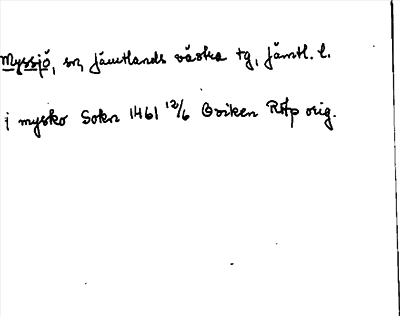 Myssjö, sn, Jämtlands västra tg, Jämtl. l.
i mysko Sokn 1461 12/6 Oviken RAp orig.